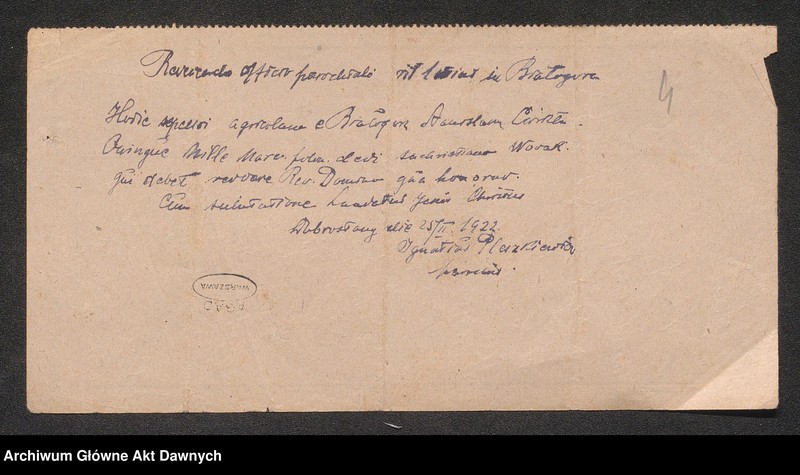 Reverendo officio parochiali rit latini in Białogóra
4
Hodie sepelivi agricolam e Białogóra Stanislaum
Quinque Mille Marc. polon. dedi Nowak.
qui debet Rev. Domino qua honorar.
Cum salutatione Laudetur Jesus Christus
Dobrostany die 25/II. 1922.
Ignatius
parochus.
AGAD
WARSZAWA
Archiwum Główne Akt Dawnych